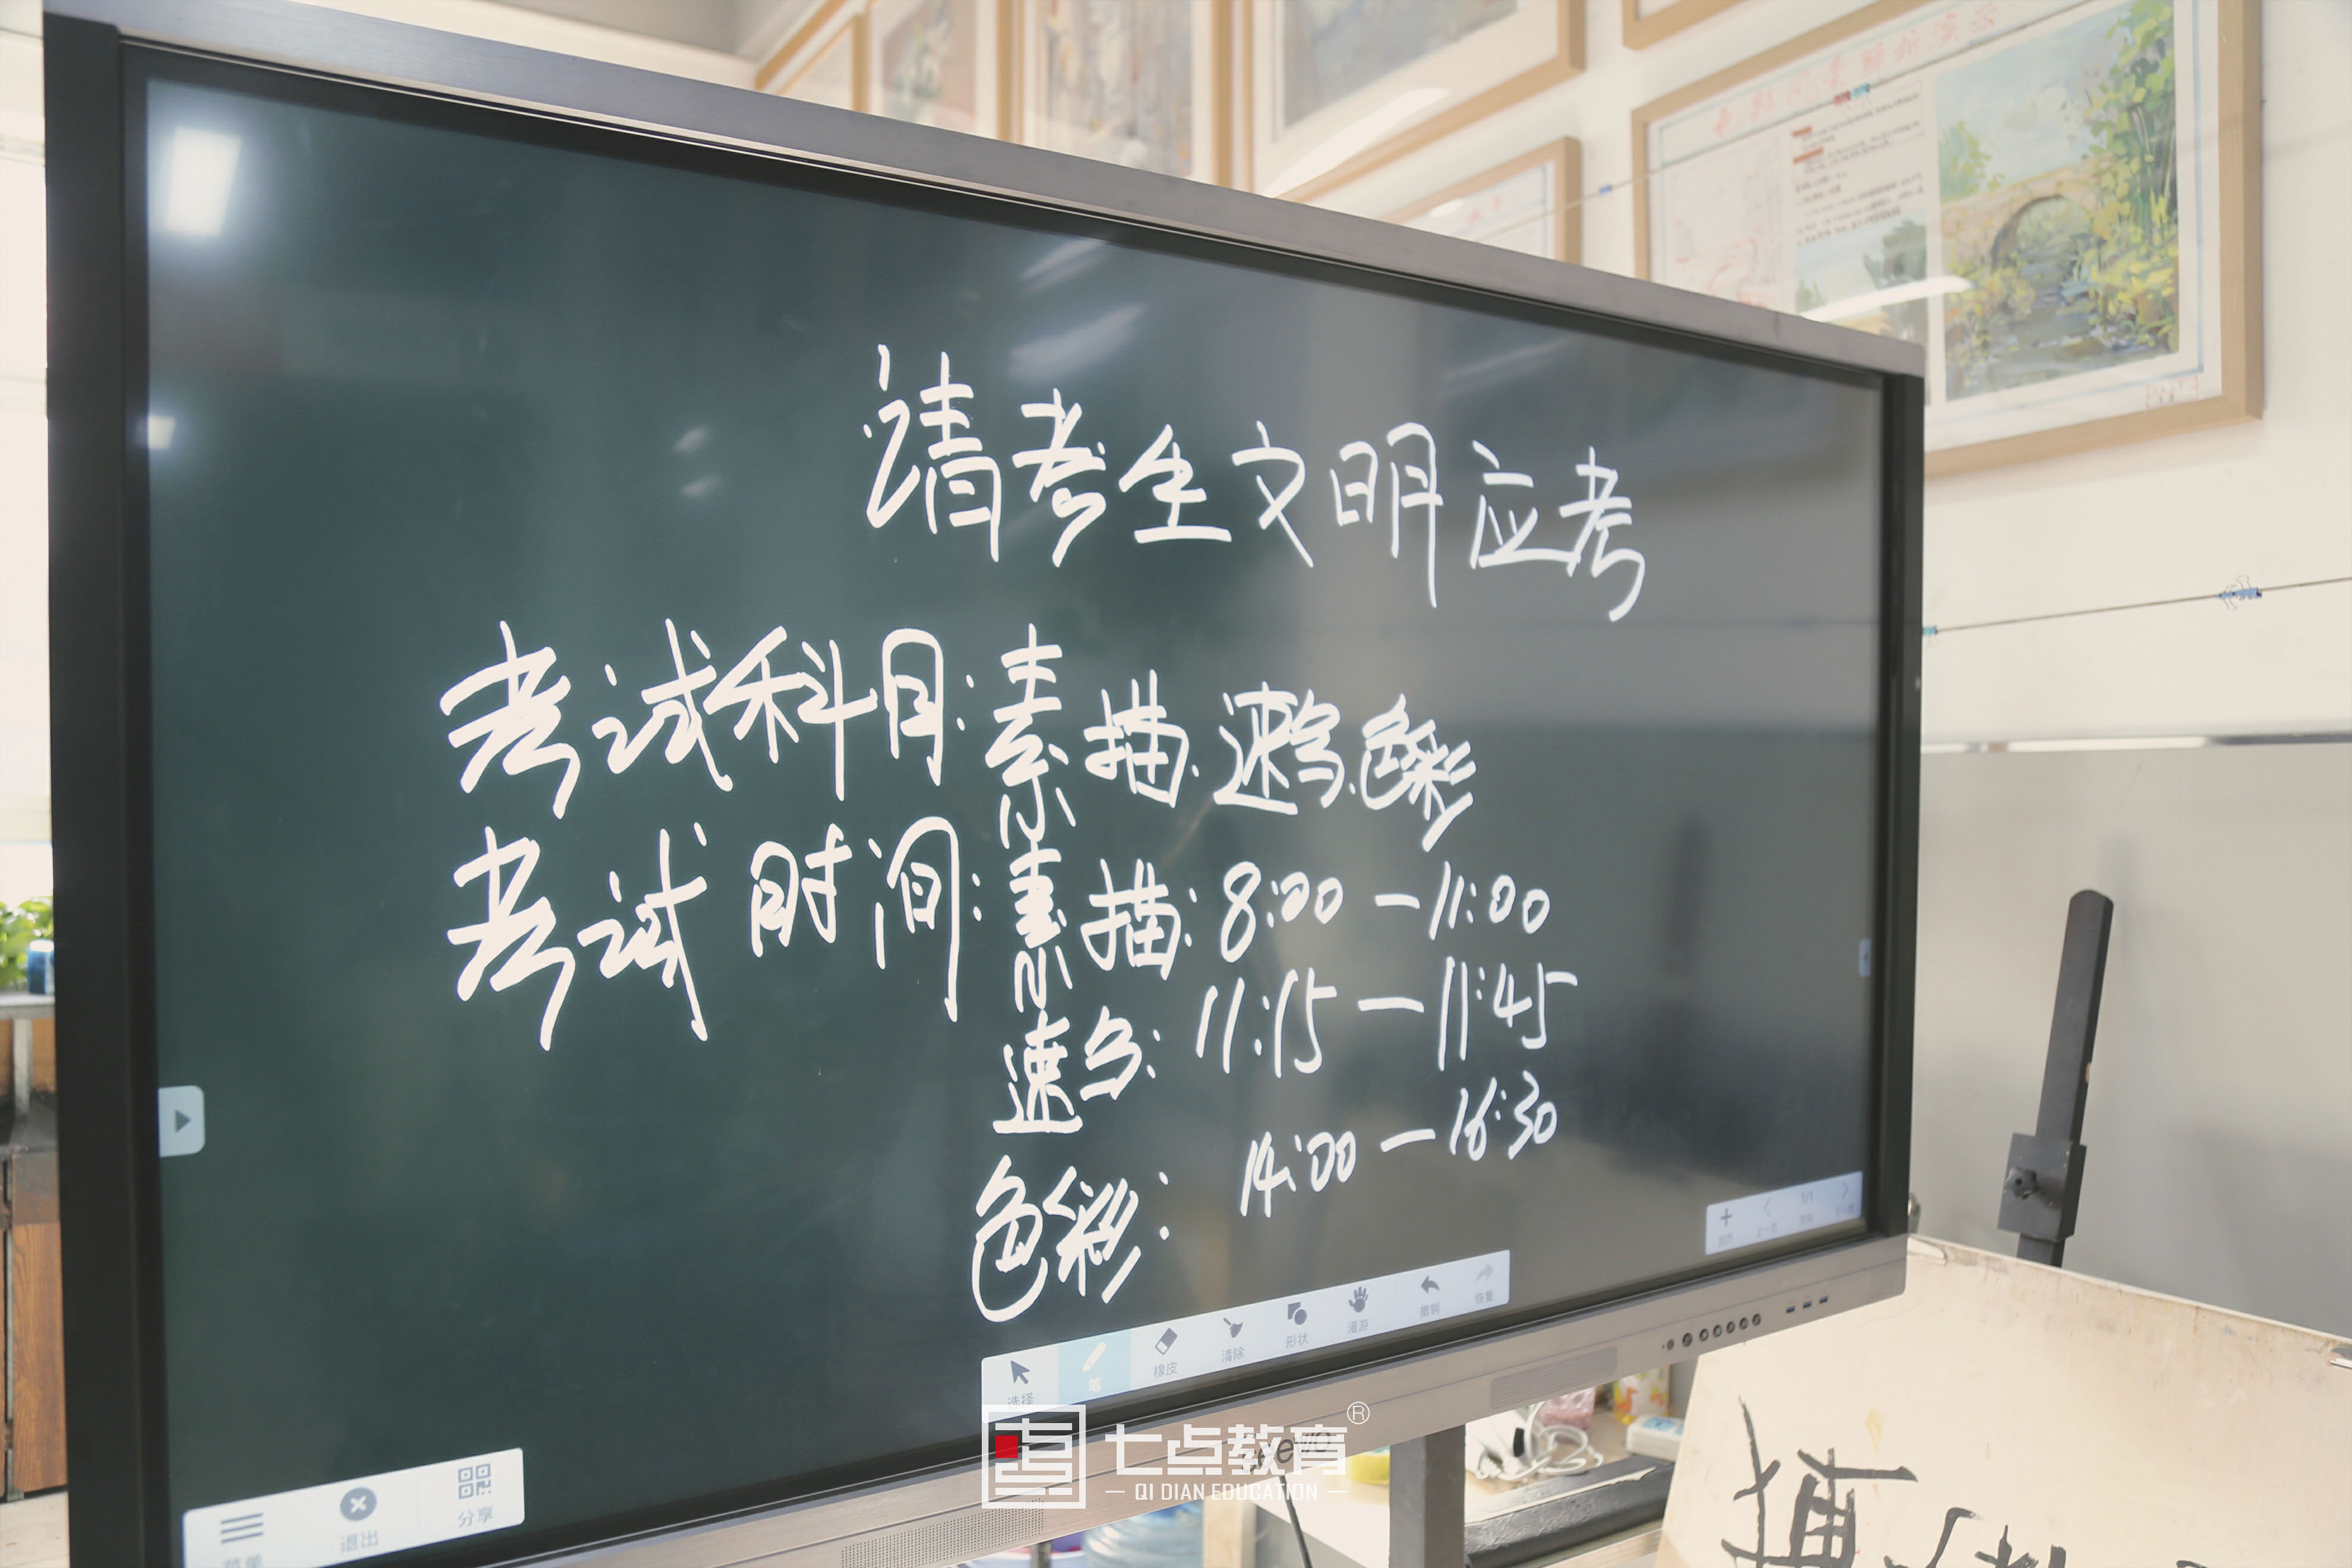 请考生文明应考
考试科目:素描、速写、色彩
考试时间:素描:8:00—11:00
速写:11:15—11:45
色彩:14:00—16:30
选择 笔 橡皮 清除 形状 漫游 撤销 恢复
1/1
菜单 退出 分享
七点教育®
QI DIAN EDUCATION